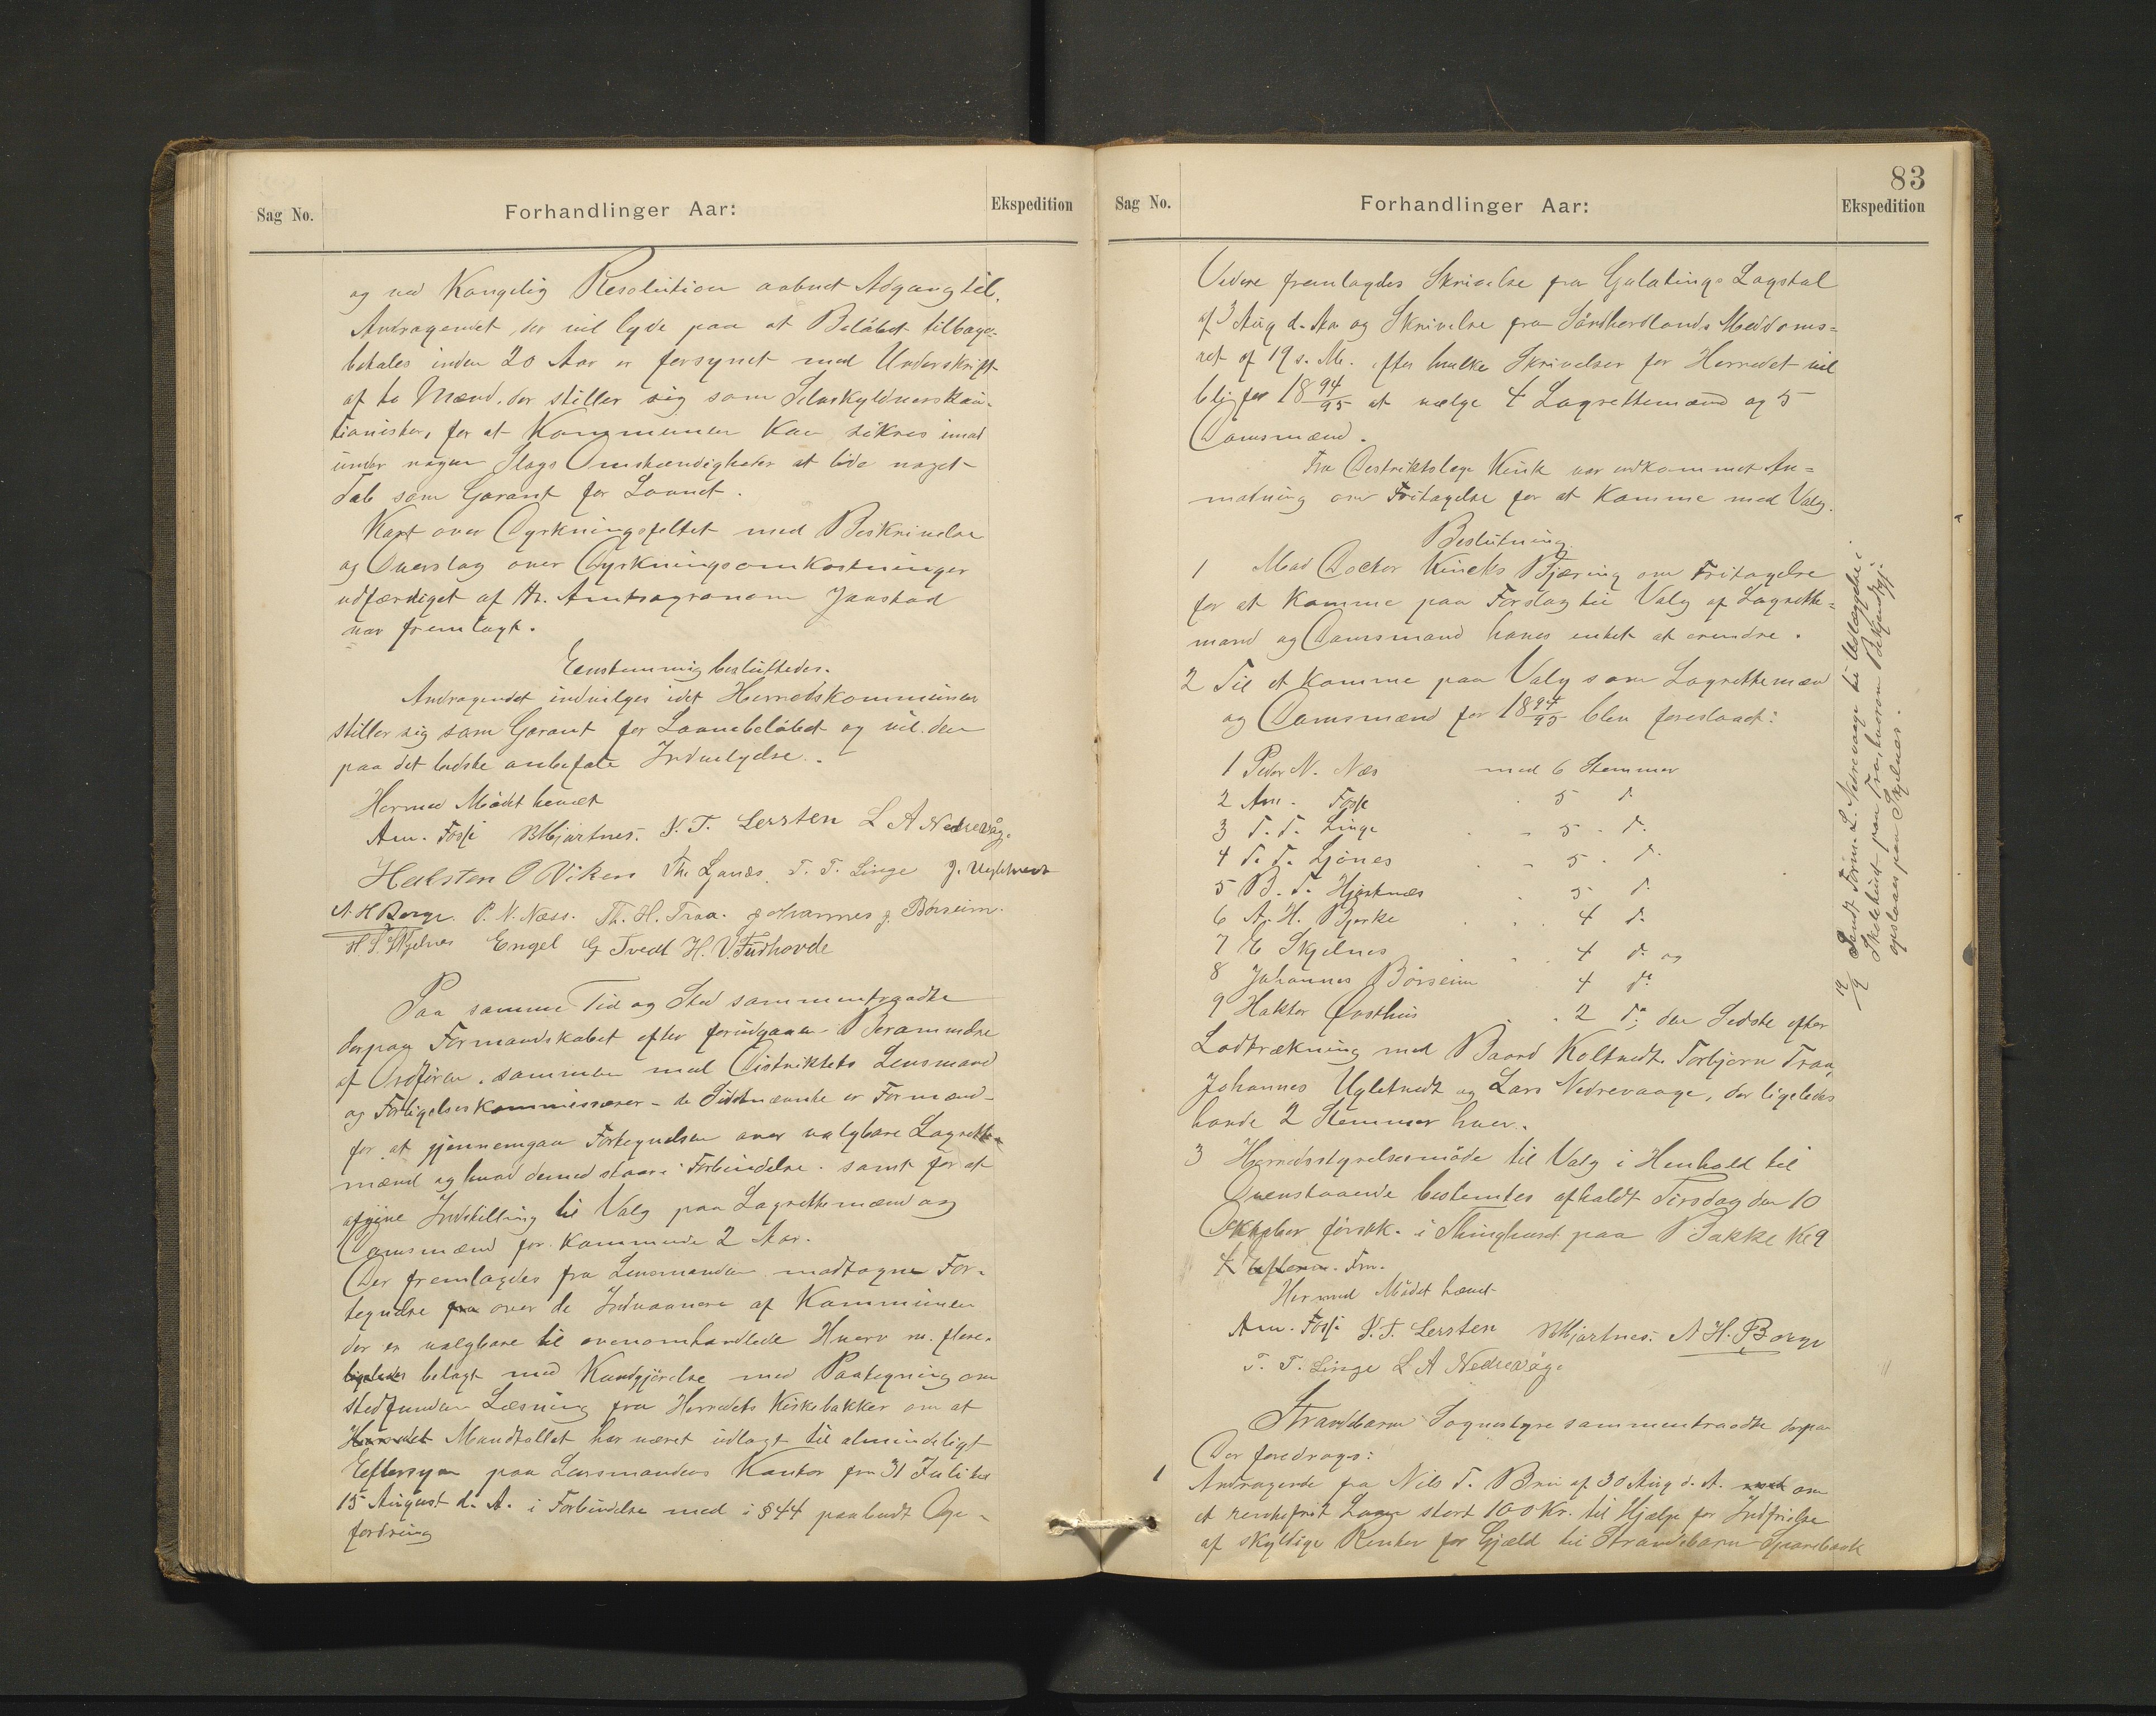 Sag No.
Forhandlinger Aar:
Ekspedition
og ved Kongelig Resolution aabnet Adgang til.
Andragendet, der vil lyde paa at Beløbet tilbage-
betales inden 20 Aar er forsynet med Underskrift
af to Mænd, der stiller sig som Selvskyldnerskau-
tionister, for at Kommunen kan sikres imod
under nogen Slags Omstændigheder at lide noget
Tab som Garant for Laanet.
Kart over Dyrkningsfeltet med Beskrivelse
og Overslag over Dyrkningsomkostninger
udfærdiget af Hr. Amtsagronom Jaastad
var fremlagt.
Eenstemmig besluttedes.
Andragendet indvilges idet Herredskommunen
stiller sig som Garant for Laanebeløbet og vil den
paa det bedste anbefale Indvilgelse.
Hermed Mødet hævet
Am. Fosse BHjartnes. N. T. Lersten L A Nedrevåge
Halsten O Viken Th. Ljønes. T. T. Linge J. Ugletvedt
A. H Berge. P. N. Næss. Th. H. Traa. Johannes J. Børseim.
H S. Skjelnes Engel G Tvedt H. V. Fudhovde
Paa samme Tid og Sted sammentraadte
derpaa Formandskabet efter forudgaaen Berammelse
af Ordføren, sammen med Distriktets Lensmand
og Forligelseskommissærer - de Sidstnævnte er Formænd -
for at gjennemgaa Fortegnelsen over valgbare Lagrette-
mænd og hvad dermed staar i Forbindelse. samt for at
afgive Indstilling til Valg paa Lagrettemænd og
Domsmænd for kommende 2 Aar.
Der fremlagdes fra Lensmanden modtagne For-
tegnelse fra over de Indvaanere af Kommunen
der er valgbare til ovenomhandlede Hverv m. flere.
ligeledes belagt med Kundgjørelse med Paategning om
stedfunden Læsning fra Herredets Kirkebakker om at
Herredet Mandtallet har været udlagt til almindeligt
Eftersyn paa Lensmandens Kontor fra 31 Juli til
15 August d. A. i Forbindelse med i § 44 paabudt Op-
fordring
83
Sag No.
Forhandlinger Aar:
Ekspedition
Videre fremlagdes Skrivelse fra Gulatings Lagstol
af 3 Aug d. Aar og Skrivelse fra Søndhordlands Meddoms=
ret af 19 s. M. efter hvilke Skrivelser for Herredet vil
bli for 18 94/95 at vælge 4 Lagrettemænd og 5
Domsmænd.
Fra Destriktslæge Kink var indkommet An=
modning om Fritagelse for at komme med Valg.
Beslutning
1 Mod Doctor Kincks Begjæring om Fritagelse
for at komme paa Forslag til Valg af Lagrette=
mand og Domsmand haves intet at erindre.
2 Til at komme paa Valg som Lagrettemæn
og Domsmænd for 18 94/95 blev foreslaaet:
1 Peder N. Næs med 6 Stemmer
2 Am. Fosse 5 d.
3 T. T. Linge 5 d.
4 T. T. Ljønes 5 d.
5 B. T. Hjartnæs 5 d.
6 A. H. Berke 4 d.
7 E Skjelnes 4 d. og
8 Johannes Börseim 4 do
9 Haktor Øvsthus 2 do, den Sidste efter
Lodtrækning med Baard Koltvedt. Torbjørn Traa,
Johannes Ugletvedt og Lars Nedrevaage, der ligeledes
havde 2 Stemmer hver.
3 Herredsstyrelsesmöde til Valg i Henhold til
Ovenstaaende bestemtes afholdt Tirsdag den 10
Oktober førstk. i Thinghuset paa Bakke Kl 9
Fm.
Hermed Mödet hævet
Am. Fosse N. T. Lersten BHjartnes. A H. Berge
T. T. Linge L A Nedrevåge
Strandebarm Sognestyre sammentraadte derpaa
Der foredroges:
1 Andragende fra Nils T. Bru af 30 Aug d. A. om
et rentefrit Laan stort 100 Kr. til Hjælp for Indfrielse
af skyldige Renter for Gjæld til Strandebarm Sparebank
14/9 Sendt Form. L. Nedrevaage til Udlæggelse i
Skolehuset paa Fosse, hvorom Bekjendtgj.
opslaaes paa Skjelnes.